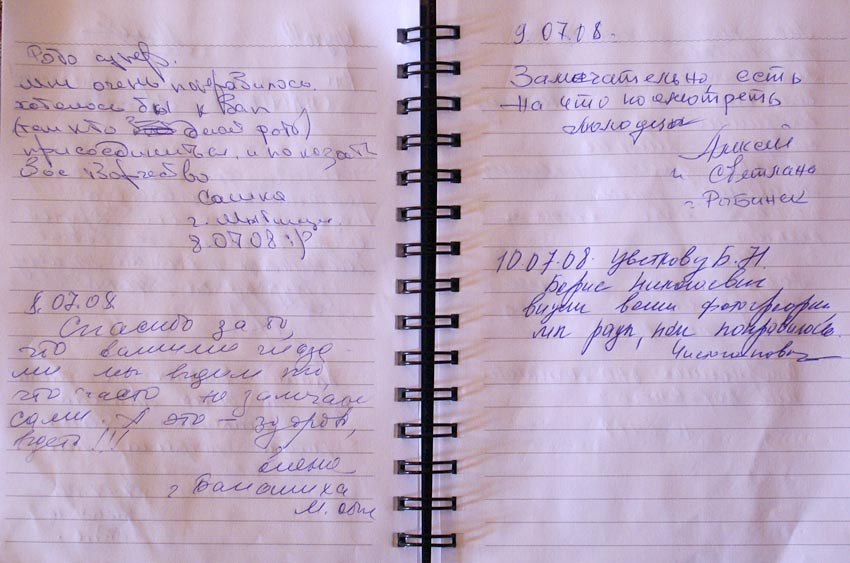 Фото супер.
мне очень понравилось.
хотелось бы к Вам
(там кто делал фото)
присоединиться, и показать
Вое творчество
Сашка
г. Мытищи.
8.07.08 :)
8.07.08
Спасибо за то,
что вашими глаза-
ми мы видим то,
что часто не замечаем
сами. А это – здорово,
видеть!!!
Елена
г Балашиха
М. обл
9.07.08.
Замечательно, есть
на что посмотреть
молодцы
Алексей
и Светлана
г. Рыбинск
10.07.08. Цветкову Б. Н.
Борис Николаевич
видели ваши фотографии
мы рады, нам понравилось.